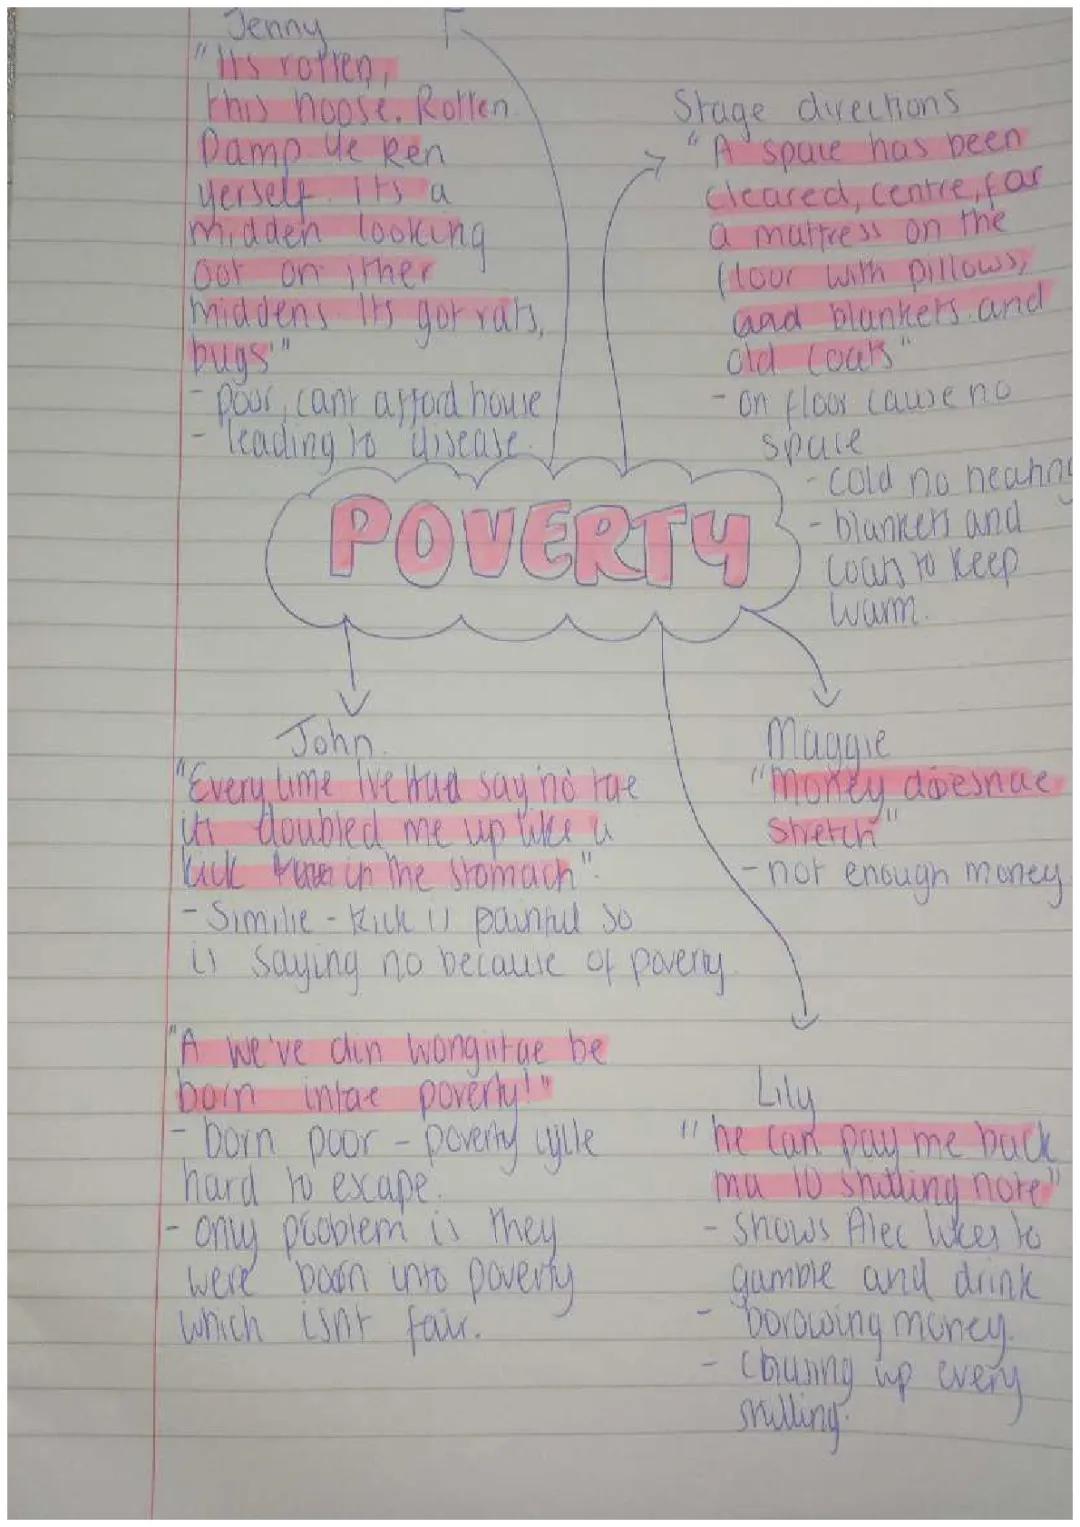 Jenny
"Its rotten,
this hoose. Rotten.
Damp Ye Ken
yerself. Its a
midden looking
oot on ither
middens. Its got rats,
bugs"
- poor, cant afford house
- leading to disease.
Stage directions
"A space has been
cleared, centre, for
a mattress on the
floor with pillows,
and blankets and
old coats"
- on floor cause no
space
- cold no heating
- blankets and
coats to keep
warm.
POVERTY
John.
"Every time I've Had say no tae
its doubled me up like a
kick in the stomach".
- Similie - kick is painful so
is saying no because of poverty.
"A we've din wrongistae be
born intae poverty!"
- born poor - poverty cylle
hard to exape.
- only problem is they
were born into poverty
which isnt fair.
Maggie
"Money doesnae
stretch"
- not enough money
Lily
"he can pay me back
ma 10 shilling note"
- shows Alec likes to
gamble and drink
- borowing money.
- up every
shilling.